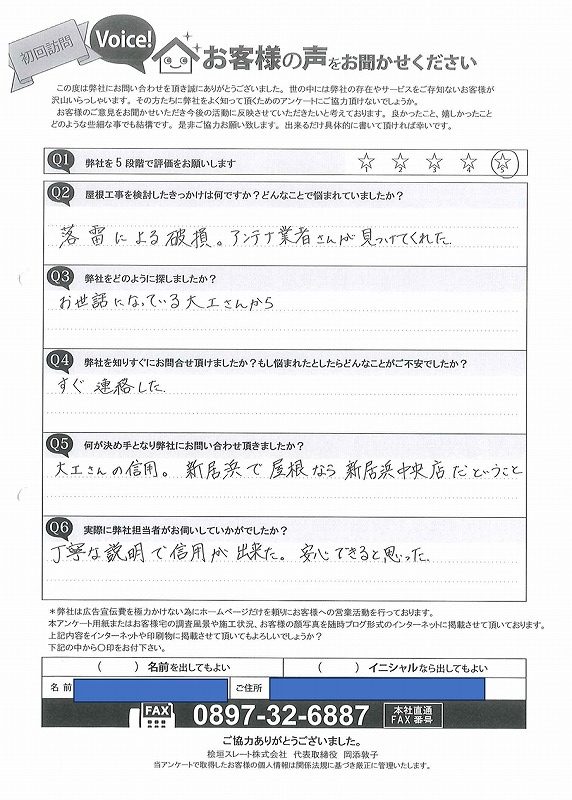 初回訪問
Voice!
お客様の声をお聞かせください
この度は弊社にお問い合わせを頂き誠にありがとうございました。世の中には弊社の存在やサービスをご存知ないお客様が
沢山いらっしゃいます。その方たちに弊社をよく知って頂くためのアンケートにご協力頂けないでしょうか。
お客様のご意見をお聞かせいただき今後の活動に反映させていただきたいと考えております。良かったこと、嬉しかったこと
どのような些細な事でも結構です。是非ご協力お願い致します。出来るだけ具体的に書いて頂ければ幸いです。
Q1 弊社を5段階で評価をお願いします 1 2 3 4 5
Q2 屋根工事を検討したきっかけは何ですか?どんなことで悩まれていましたか?
落雷による破損。アンテナ業者さんが見つけてくれた
Q3 弊社をどのように探しましたか?
お世話になっている大工さんから
Q4 弊社を知りすぐにお問合せ頂けましたか?もし悩まれたとしたらどんなことがご不安でしたか?
すぐ連絡した
Q5 何が決め手となり弊社にお問い合わせ頂きましたか?
大工さんの信用。新居浜で屋根なら新居浜中央店だということ
Q6 実際に弊社担当者がお伺いしていかがでしたか?
丁寧な説明で信用が出来た。安心できると思った
*弊社は広告宣伝費を極力かけない為にホームページだけを頼りにお客様への営業活動を行っております。
本アンケート用紙またはお客様宅の調査風景や施工状況、お客様の顔写真を随時ブログ形式のインターネットに掲載させて頂いております。
上記内容をインターネットや印刷物に掲載させて頂いてもよろしいでしょうか?
下記の中から〇印をお付下さい。
( )名前を出してもよい ( )イニシャルなら出してもよい
名前 ご住所
FAX 0897-32-6887 本社直通
FAX番号
ご協力ありがとうございました。
桧垣スレート株式会社 代表取締役 岡添敦子
当アンケートで取得したお客様の個人情報は関係法規に基づき厳正に管理いたします。